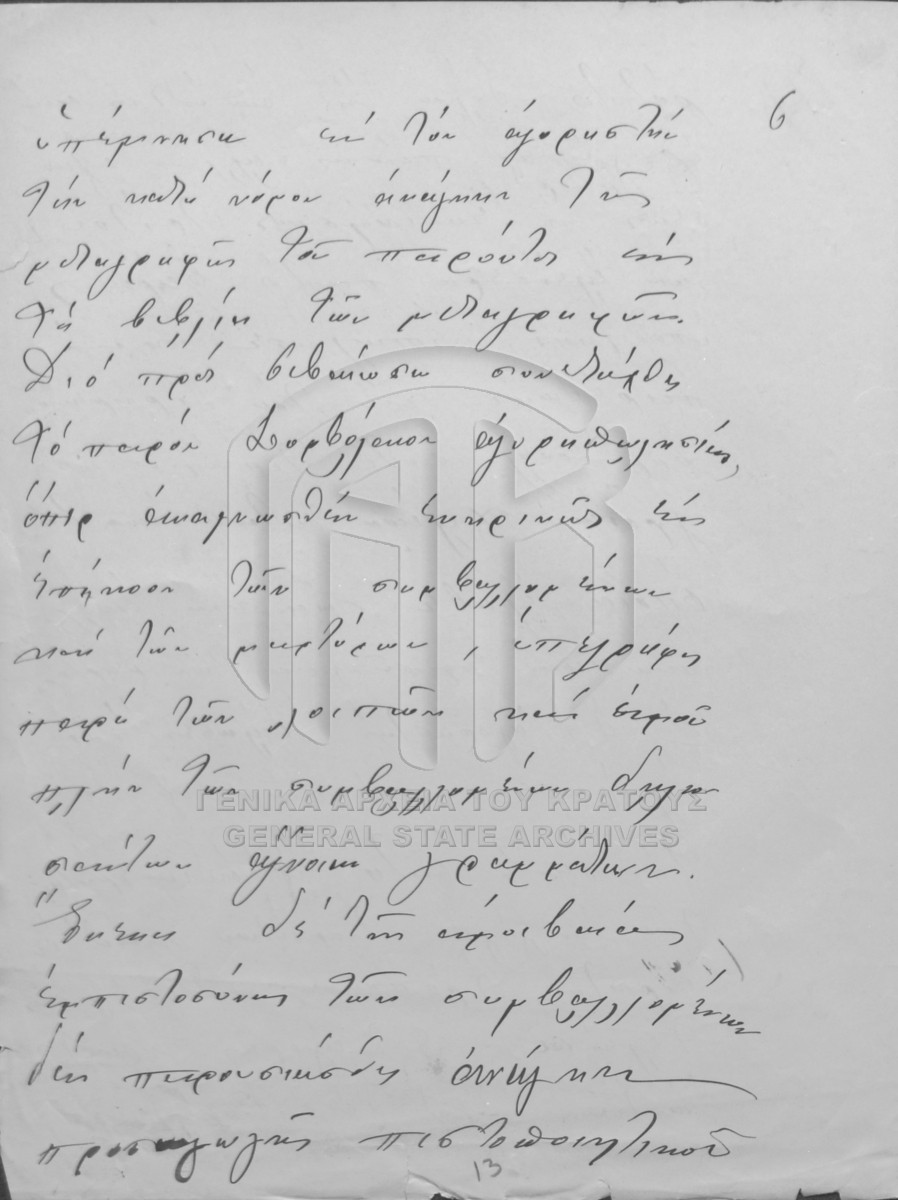 6
ὑπέμνησα εἰς τὸν ἀγοραστὴν
τὴν κατὰ νόμον ἀνάγκην τῆς
μεταγραφῆς τοῦ παρόντος εἰς
τὰ βιβλία τῶν μεταγραφῶν.
Διὸ πρὸς βεβαίωσιν συνετάχθη
τὸ παρὸν Συμβόλαιον ἀγοραπωλησίας,
ὅπερ ἀναγνωσθὲν εὐκρινῶς εἰς
ἐπήκοον τῶν συμβαλλομένων
καὶ τῶν μαρτύρων, ὑπεγράφη
παρὰ τῶν λοιπῶν καὶ ἐμοῦ
πλὴν τῶν συμβαλλομένων δηλω
σάντων ἄγνοιαν γραμμάτων.
Ἕνεκα δὲ τῆς ἀμοιβαίας
ἐμπιστοσύνης τῶν συμβαλλομένων
δὲν παρουσιάσθη ἀνάγκη
προσαγωγῆς πιστοποιητικοῦ
13
ΓΕΝΙΚΑ ΑΡΧΕΙΑ ΤΟΥ ΚΡΑΤΟΥΣ
GENERAL STATE ARCHIVES